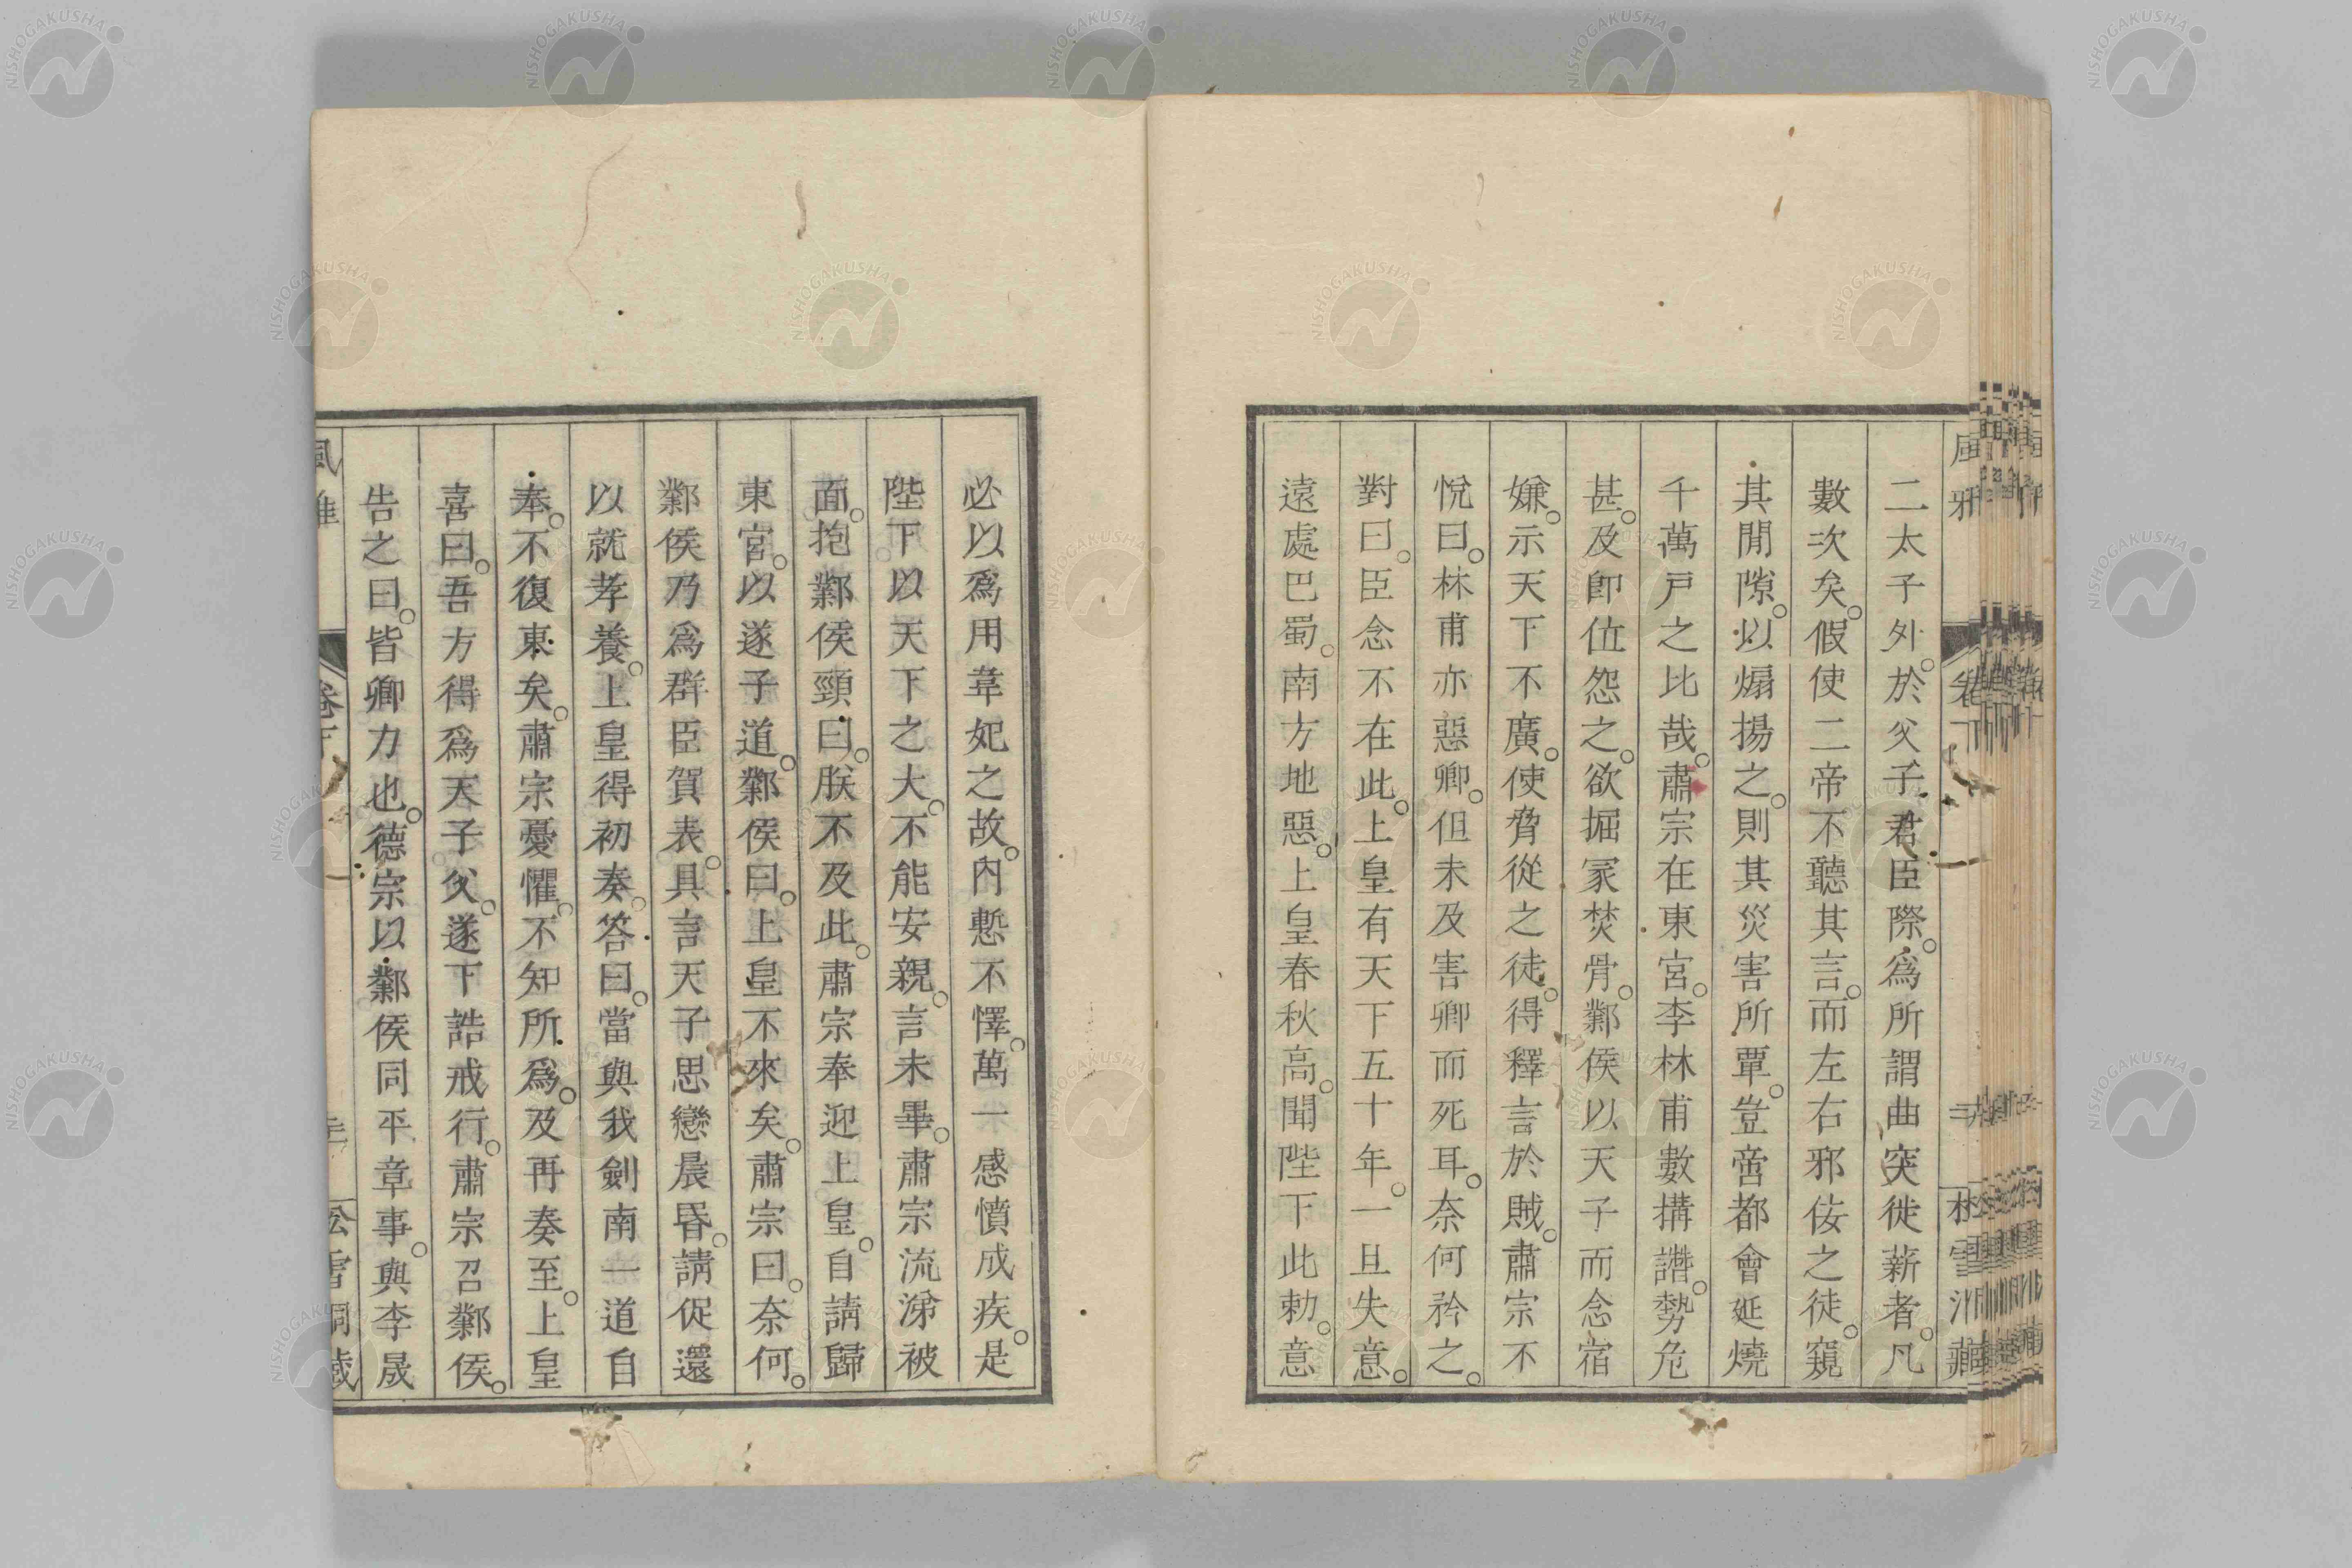 二太子外。於父子君臣際。爲所謂曲突徙薪者。凡
數次矣。假使二帝不聽其言。而左右邪佞之徒。窺
其閒隙。以煽揚之。則其災害所覃。豈啻都會延燒
千萬戸之比哉。肅宗在東宮。李林甫數搆譖。勢危
甚。及卽位怨之。欲掘冢焚骨。鄴侯以天子而念宿
嫌。示天下不廣。使脅從之徒。得釋言於賊。肅宗不
悅曰。林甫亦惡卿。但未及害卿而死耳。奈何矜之。
對曰。臣念不在此。上皇有天下五十年。一旦失意。
遠處巴蜀。南方地惡。上皇春秋高。聞陛下此勅。意
必以爲用韋妃之故。內慙不懌。萬一感憤成疾。是
陛下以天下之大。不能安親。言未畢。肅宗流涕被
面。抱鄴侯頸曰。朕不及此。肅宗奉迎上皇。自請歸
東宮。以遂子道。鄴侯曰。上皇不來矣。肅宗曰。奈何。
鄴侯乃爲群臣賀表。具言天子思戀晨昏。請促還
以就孝養。上皇得初奏。答曰。當與我劍南一道自
奉。不復東矣。肅宗憂懼。不知所爲。及再奏至。上皇
喜曰。吾方得爲天子父。遂下誥戒行。肅宗召鄴侯。
告之曰。皆卿力也。德宗以鄴侯同平章事。與李晟
NISHOGAKUSHA